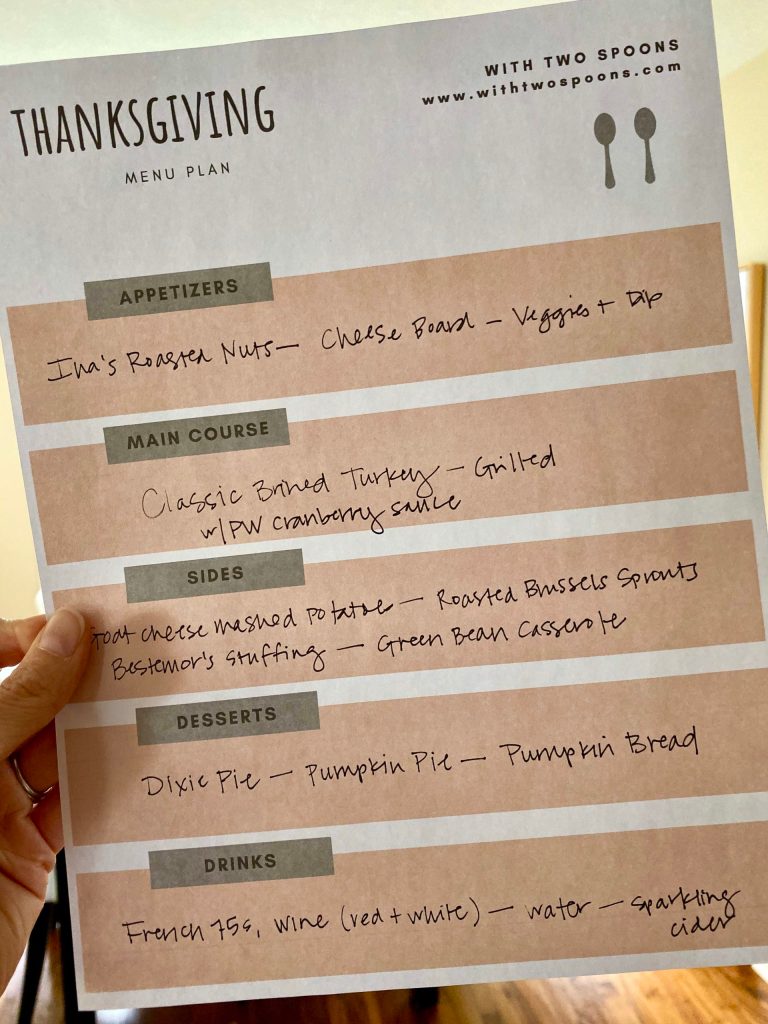 WITH TWO SPOONS
www.withtwospoons.com
THANKSGIVING
MENU PLAN
APPETIZERS
Ina's Roasted Nuts— Cheese Board — Veggies + Dip
MAIN COURSE
Classic Brined Turkey — Grilled
w/PW cranberry sauce
SIDES
Goat cheese mashed potatoe — Roasted Brussels Sprouts
Bestemor's Stuffing — Green Bean Casserole
DESSERTS
Dixie Pie — Pumpkin Pie — Pumpkin Bread
DRINKS
French 75s, wine (red + white) — water — sparkling
cider